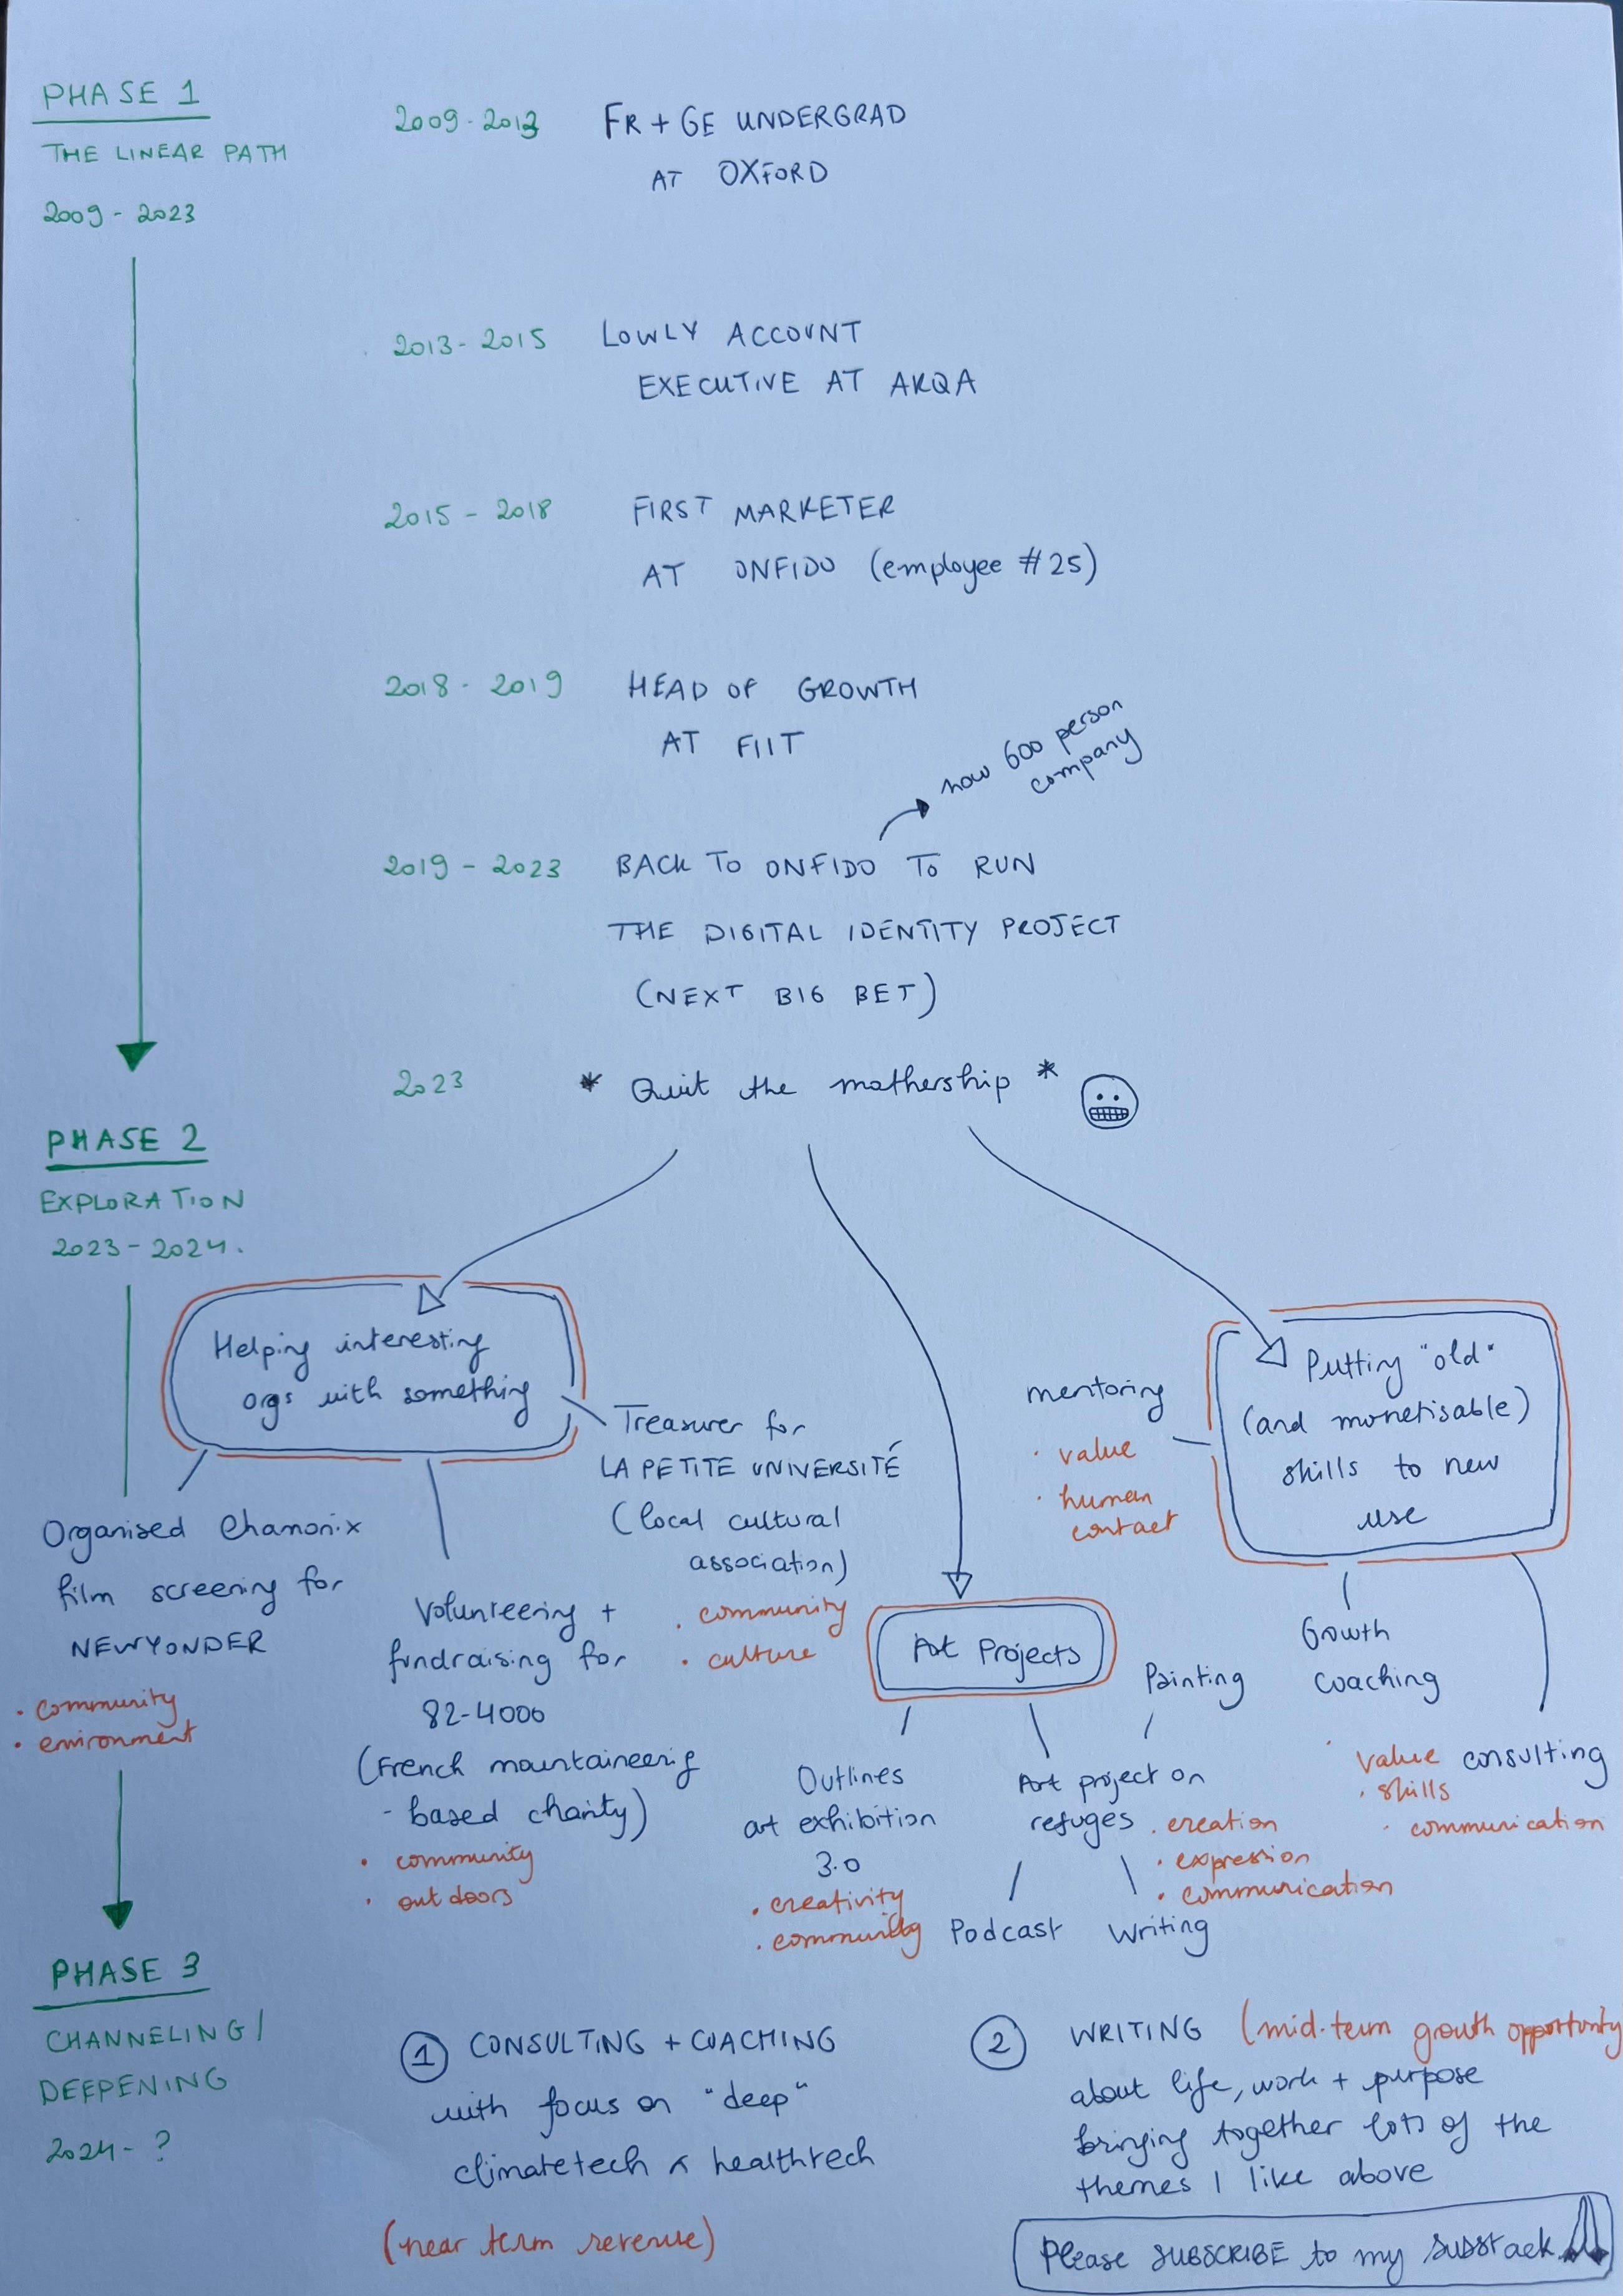 PHASE 1
THE LINEAR PATH
2009 - 2023
2009 - 2013 FR + GE UNDERGRAD
AT OXFORD
2013 - 2015 LOWLY ACCOUNT
EXECUTIVE AT AKQA
2015 - 2018 FIRST MARKETER
AT ONFIDO (employee #25)
2018 - 2019 HEAD OF GROWTH
AT FIIT
now 600 person
company
2019 - 2023 BACK TO ONFIDO TO RUN
THE DIGITAL IDENTITY PROJECT
(NEXT BIG BET)
2023 * Quit the mothership *
PHASE 2
EXPLORATION
2023 - 2024.
Helping interesting
orgs with something
Organised Chamonix
film screening for
NEWYONDER
• community
• environment
Volunteering +
fundraising for
82-4000
(French mountaineering
- based charity)
• community
• outdoors
Treasurer for
LA PETITE UNIVERSITÉ
(local cultural
association)
• community
• culture
Art Projects
Outlines
at exhibition
3.0
• creativity
• community
Painting
Art project on
refuges
• creation
• expression
• communication
Podcast
Writing
Putting "old"
(and monetisable)
skills to new
use
mentoring
• value
• human
contact
Growth
coaching
consulting
• value
• skills
• communication
PHASE 3
CHANNELING /
DEEPENING
2024 - ?
1 CONSULTING + COACHING
with focus on "deep"
climatetech & healthtech
(near term revenue)
2 WRITING (mid-term growth opportunity
about life, work + purpose
bringing together lots of the
themes I like above
Please SUBSCRIBE to my substack